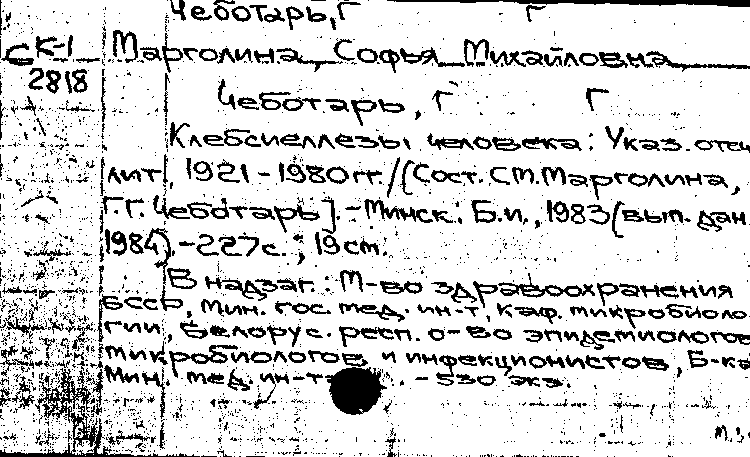 Чеботарь, Г Г
СК-1 Марголина, Софья Михайловна,
2818
Чеботарь, Г Г
Клебсиеллезы человека: Указ. отеч
лит, 1921-1980 гг. /[Сост. С.М. Марголина,
Г.Г. Чеботарь]. - Минск: Б.и., 1983 (вып. дан.
1984). - 227 с.; 19 см.
В надзаг.: М-во здравоохранения
БССР, Мин. гос. мед. ин-т, Каф. микробиоло-
гии, Белорус. респ. о-во эпидемиологов
микробиологов и инфекционистов, Б-ка
Мин. мед. ин-т - 530 экз.